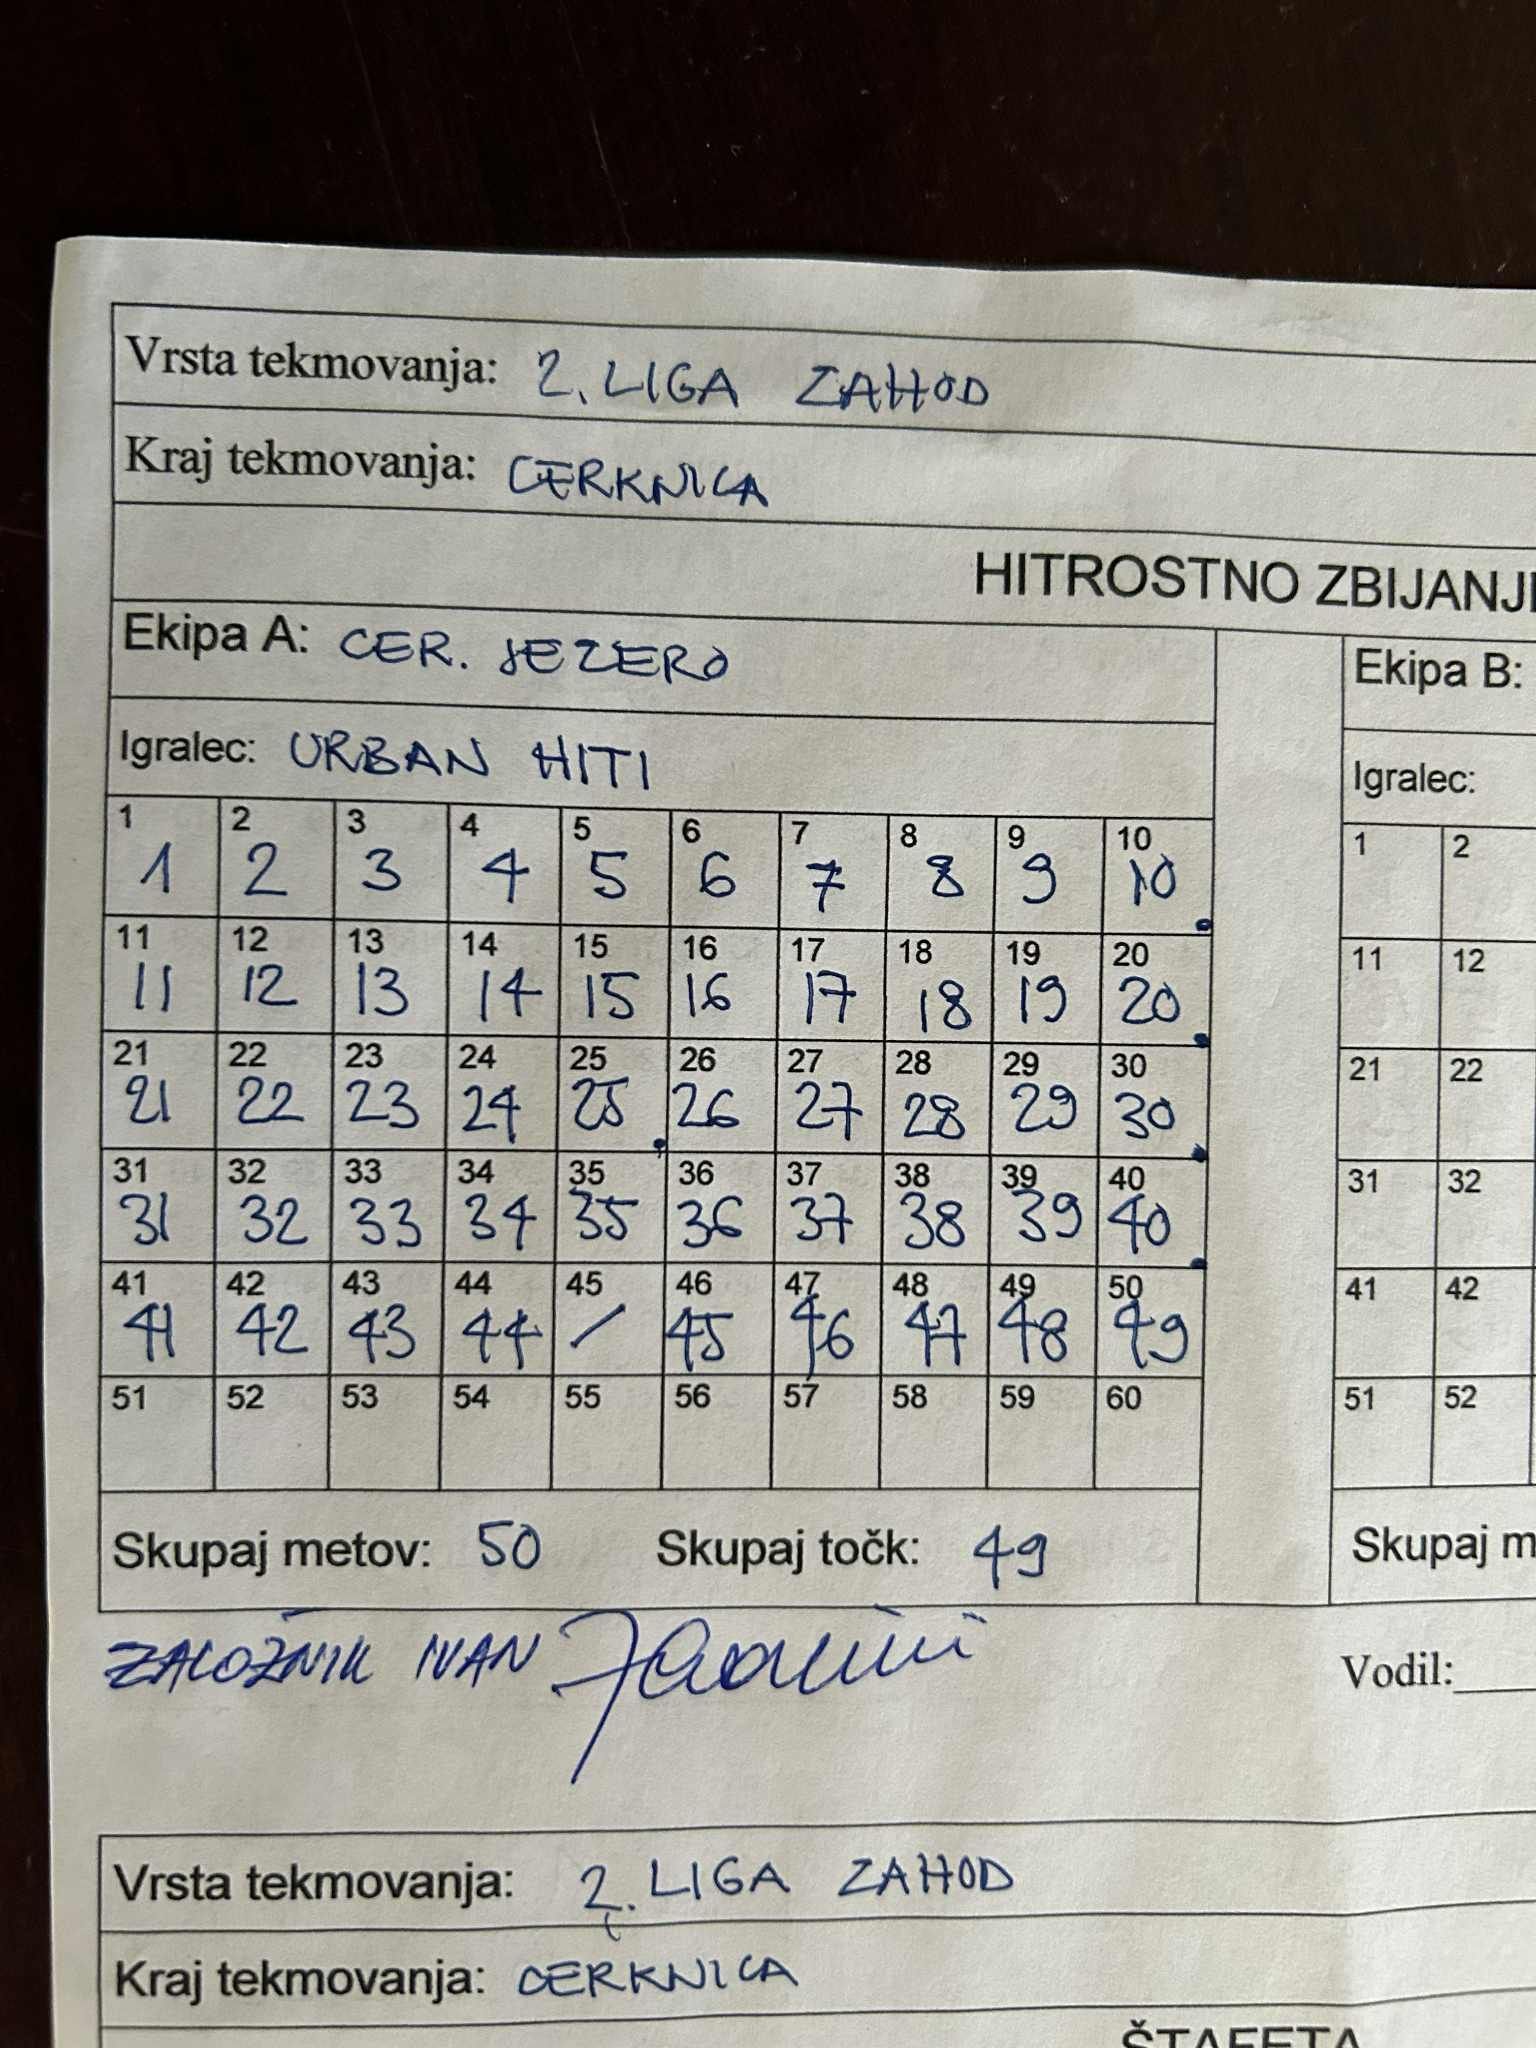 Vrsta tekmovanja: 2. LIGA ZAHOD
Kraj tekmovanja: CERKNICA
HITROSTNO ZBIJANJE
Ekipa A: CER. JEZERO
Ekipa B:
Igralec: URBAN HITI
Igralec:
1 2 3 4 5 6 7 8 9 10 1 2
1 2 3 4 5 6 7 8 9 10
11 12 13 14 15 16 17 18 19 20 11 12
11 12 13 14 15 16 17 18 19 20
21 22 23 24 25 26 27 28 29 30 21 22
21 22 23 24 25 26 27 28 29 30
31 32 33 34 35 36 37 38 39 40 31 32
31 32 33 34 35 36 37 38 39 40
41 42 43 44 45 46 47 48 49 50 41 42
41 42 43 44 / 45 46 47 48 49
51 52 53 54 55 56 57 58 59 60 51 52
Skupaj metov: 50 Skupaj točk: 49
Skupaj m
ZALOŽNIK IVAN
Vodil:
Vrsta tekmovanja: 2. LIGA ZAHOD
Kraj tekmovanja: CERKNICA
ŠTAFETA